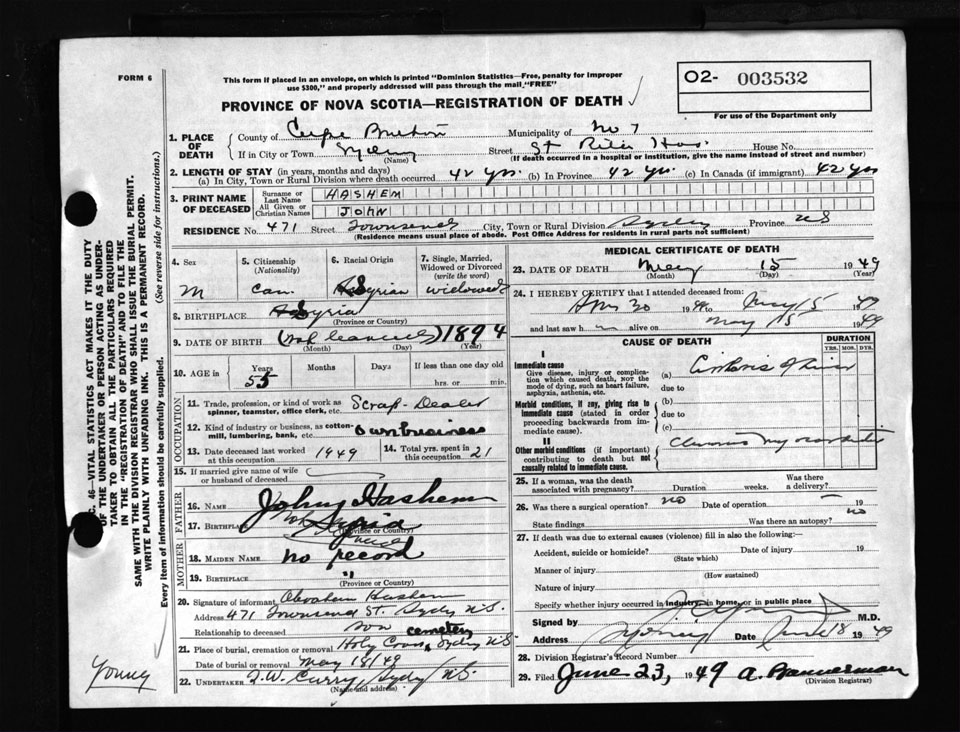 FORM 6
This form if placed in an envelope, on which is printed "Dominion Statistics—Free, penalty for improper
use $300," and properly addressed will pass through the mail "FREE"
PROVINCE OF NOVA SCOTIA—REGISTRATION OF DEATH
O2- 003532
For use of the Department only
C. 46—VITAL STATISTICS ACT MAKES IT THE DUTY
OF THE UNDERTAKER OR PERSON ACTING AS UNDER-
TAKER TO OBTAIN ALL THE PARTICULARS REQUIRED
IN THE "REGISTRATION OF DEATH" AND TO FILE THE
SAME WITH THE DIVISION REGISTRAR WHO SHALL ISSUE THE BURIAL PERMIT.
WRITE PLAINLY WITH UNFADING INK. THIS IS A PERMANENT RECORD.
Every item of information should be carefully supplied. (See reverse side for instructions.)
1. PLACE OF DEATH County of Cape Breton Municipality of No 7
If in City or Town Sydney (Name) Street St Rita Hos. House No.
(If death occurred in a hospital or institution, give the name instead of street and number)
2. LENGTH OF STAY (in years, months and days)
(a) In City, Town or Rural Division where death occurred 42 yrs. (b) In Province 42 yrs. (c) In Canada (if immigrant) 42 yrs
3. PRINT NAME OF DECEASED Surname or Last Name HASHEM
All Given or Christian Names JOHN
RESIDENCE No. 471 Street Townsend City, Town or Rural Division Sydney Province NS
(Residence means usual place of abode. Post Office Address for residents in rural parts not sufficient)
4. Sex M
5. Citizenship (Nationality) Can.
6. Racial Origin Syrian
7. Single, Married, Widowed or Divorced (write the word) widowed
8. BIRTHPLACE Syria
(Province or Country)
9. DATE OF BIRTH 1894
(Month) (Day) (Year)
10. AGE in Years 55 Months Days If less than one day old
hrs. or min.
OCCUPATION
11. Trade, profession, or kind of work as
spinner, teamster, office clerk, etc. Scrap-Dealer
12. Kind of industry or business, as cotton-
mill, lumbering, bank, etc. own business
13. Date deceased last worked
at this occupation 1949
14. Total yrs. spent in
this occupation 21
15. If married give name of wife
or husband of deceased
FATHER
16. NAME John Hashem
17. BIRTHPLACE Syria
(Province or Country)
MOTHER
18. MAIDEN NAME no record
19. BIRTHPLACE "
(Province or Country)
20. Signature of informant Abraham Hashem
Address 471 Townsend St. Sydney N.S.
Relationship to deceased son
21. Place of burial, cremation or removal Holy Cross cemetery, Sydney NS
Date of burial or removal May 18/49
22. UNDERTAKER T.W. Curry, Sydney N.S.
(Name and address)
Young
MEDICAL CERTIFICATE OF DEATH
23. DATE OF DEATH May 15 1949
(Month) (Day) (Year)
24. I HEREBY CERTIFY that I attended deceased from:
30 19 May 15 1949
and last saw h im alive on May 15 1949
CAUSE OF DEATH
DURATION
YRS. MOS. DYS.
I
Immediate cause
Give disease, injury or complica-
tion which caused death, NOT the
mode of dying, such as heart failure,
asphyxia, asthenia, etc.
(a) Cirrhosis of Liver
due to
Morbid conditions, if any, giving rise to
immediate cause (stated in order
proceeding backwards from im-
mediate cause).
(b)
due to
(c)
II
Other morbid conditions (if important)
contributing to death but not
causally related to immediate cause.
Chronic myocarditis
25. If a woman, was the death
associated with pregnancy? Duration weeks. Was there
a delivery?
26. Was there a surgical operation? no Date of operation 19
State findings Was there an autopsy? no
27. If death was due to external causes (violence) fill in also the following:—
Accident, suicide or homicide? Date of injury 19
(State which)
Manner of injury
(How sustained)
Nature of injury
Specify whether injury occurred in industry, in home, or in public place
Signed by M.D.
Address Sydney Date June 18 1949
28. Division Registrar's Record Number
29. Filed June 23, 1949 A. Bannerman
(Division Registrar)